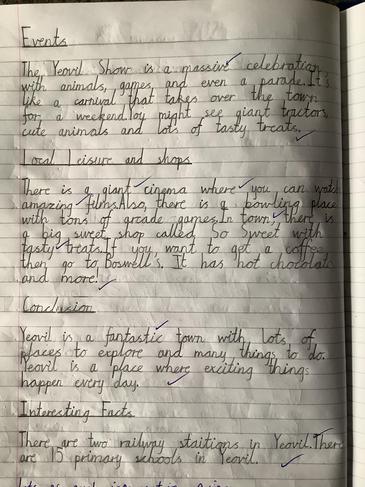 Events
The Yeovil Show is a massive celebration,
with animals, games, and even a parade. It's
like a carnival that takes over the town
for a weekend. You might see giant tractors,
cute animals and lots of tasty treats.
Local Leisure and shops
There is a giant cinema where you can watch
amazing films. Also, there is a bowling place
with tons of arcade games. In town, there is
a big sweet shop called, So Sweet with
tasty treats. If you want to get a coffee
then go to Boswell's. It has hot chocolate
and more.
Conclusion
Yeovil is a fantastic town with lots of
places to explore and many things to do.
Yeovil is a place where exciting things
happen every day.
Interesting Facts
There are two railway staitions in Yeovil. There
are 15 primary schools in Yeovil.